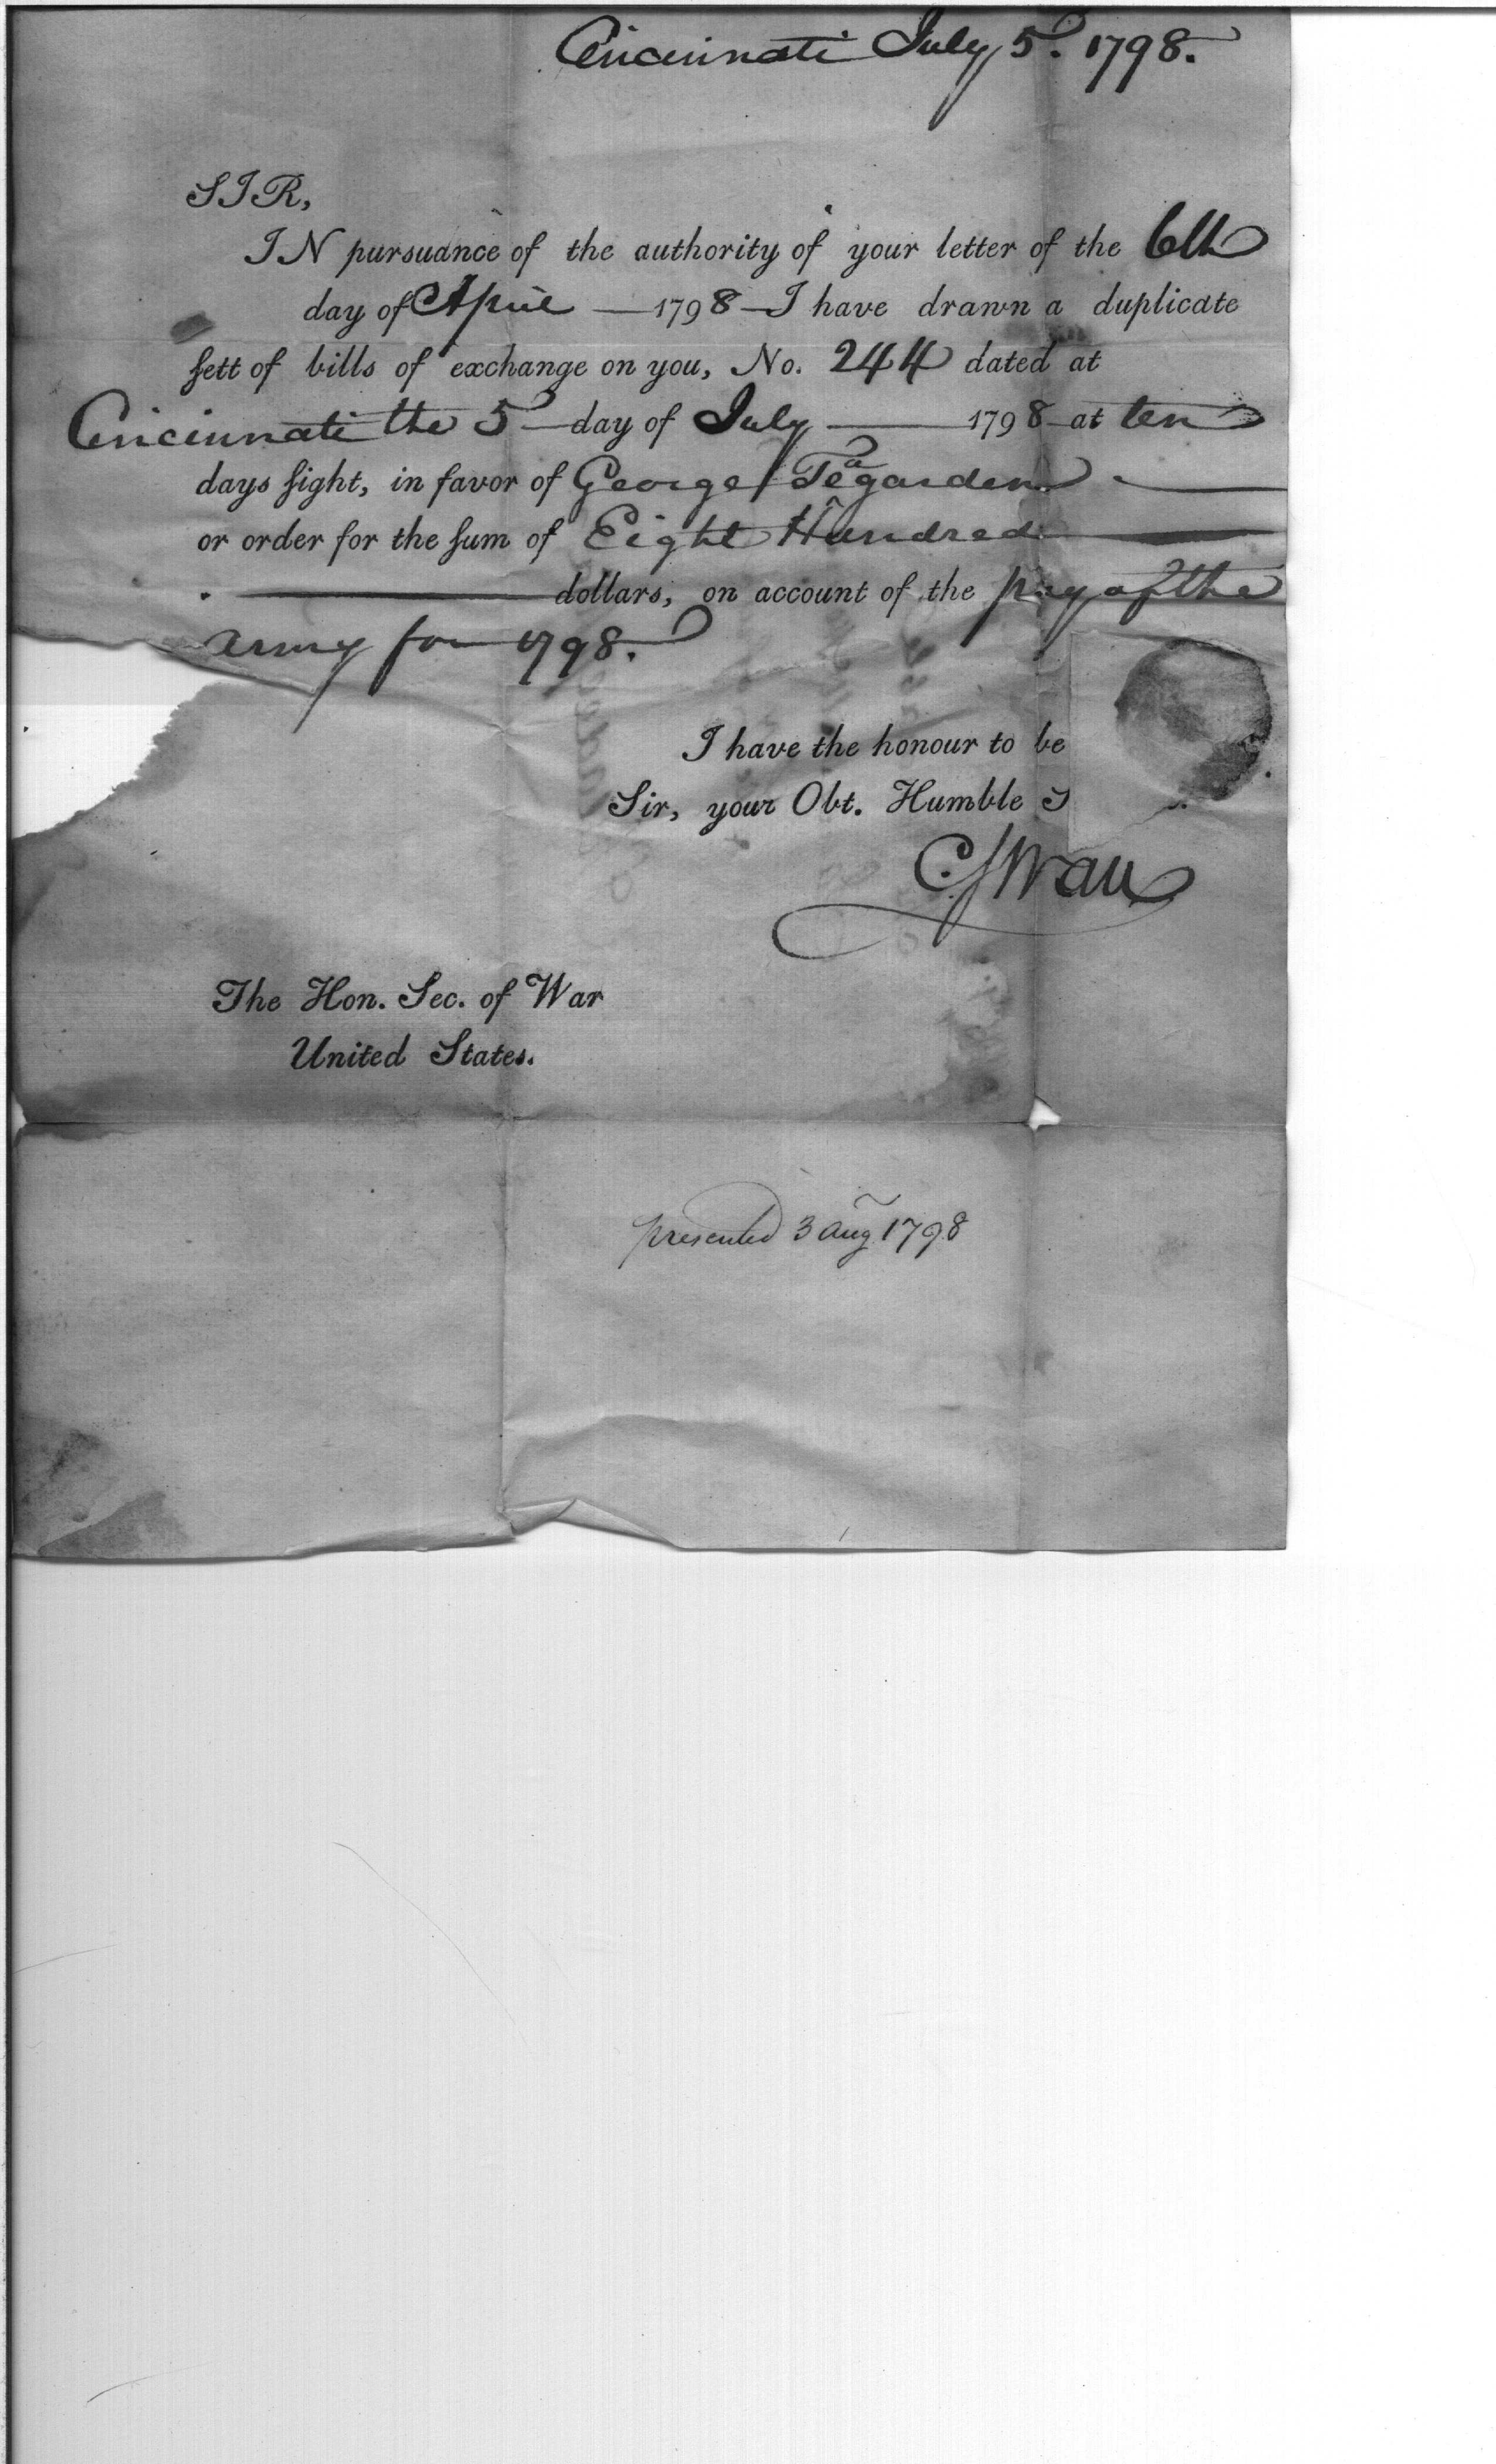 Cincinnati July 5. 1798.
SIR,
IN pursuance of the authority of your letter of the 6th
day of April — 1798 — I have drawn a duplicate
sett of bills of exchange on you, No. 244 dated at
Cincinnati the 5 — day of July — 1798 — at ten
days sight, in favor of George Teagarden —
or order for the sum of Eight Hundred —
— dollars, on account of the pay of the
army for 1798.
I have the honour to be
Sir, your Obt. Humble S
C. Swan
The Hon. Sec. of War
United States.
presented 3 Aug 1798